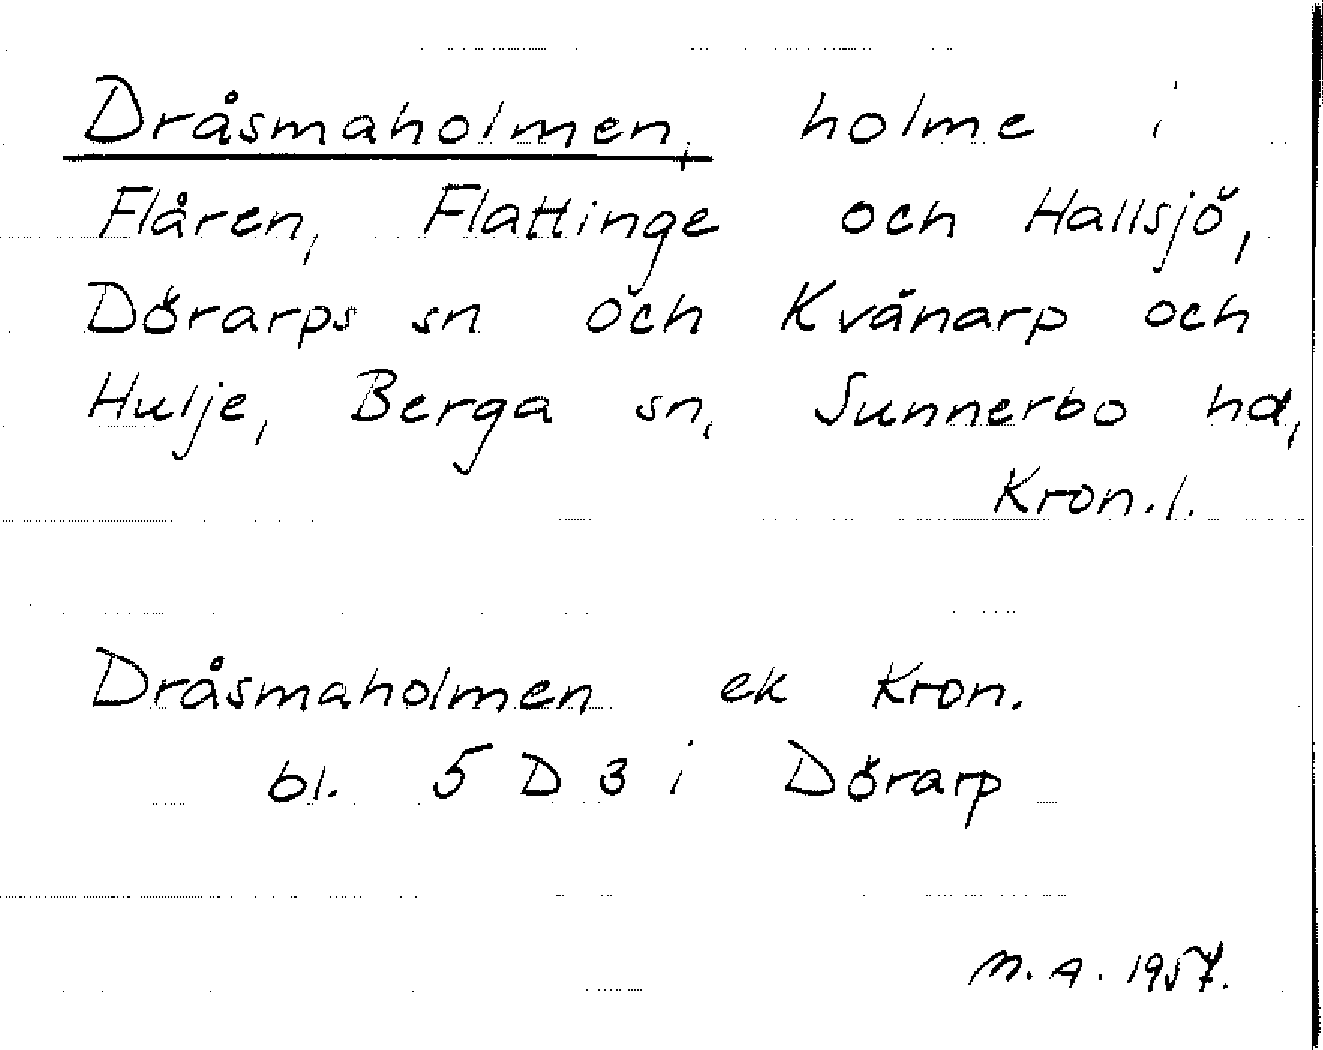 Dråsmaholmen, holme i
Flåren, Flattinge och Hallsjö,
Dörarps sn och Kvänarp och
Hulje, Berga sn, Sunnerbo hd,
Kron.l.
Dråsmaholmen ek Kron.
bl. 5 D 3 i Dörarp
M.A. 1957.